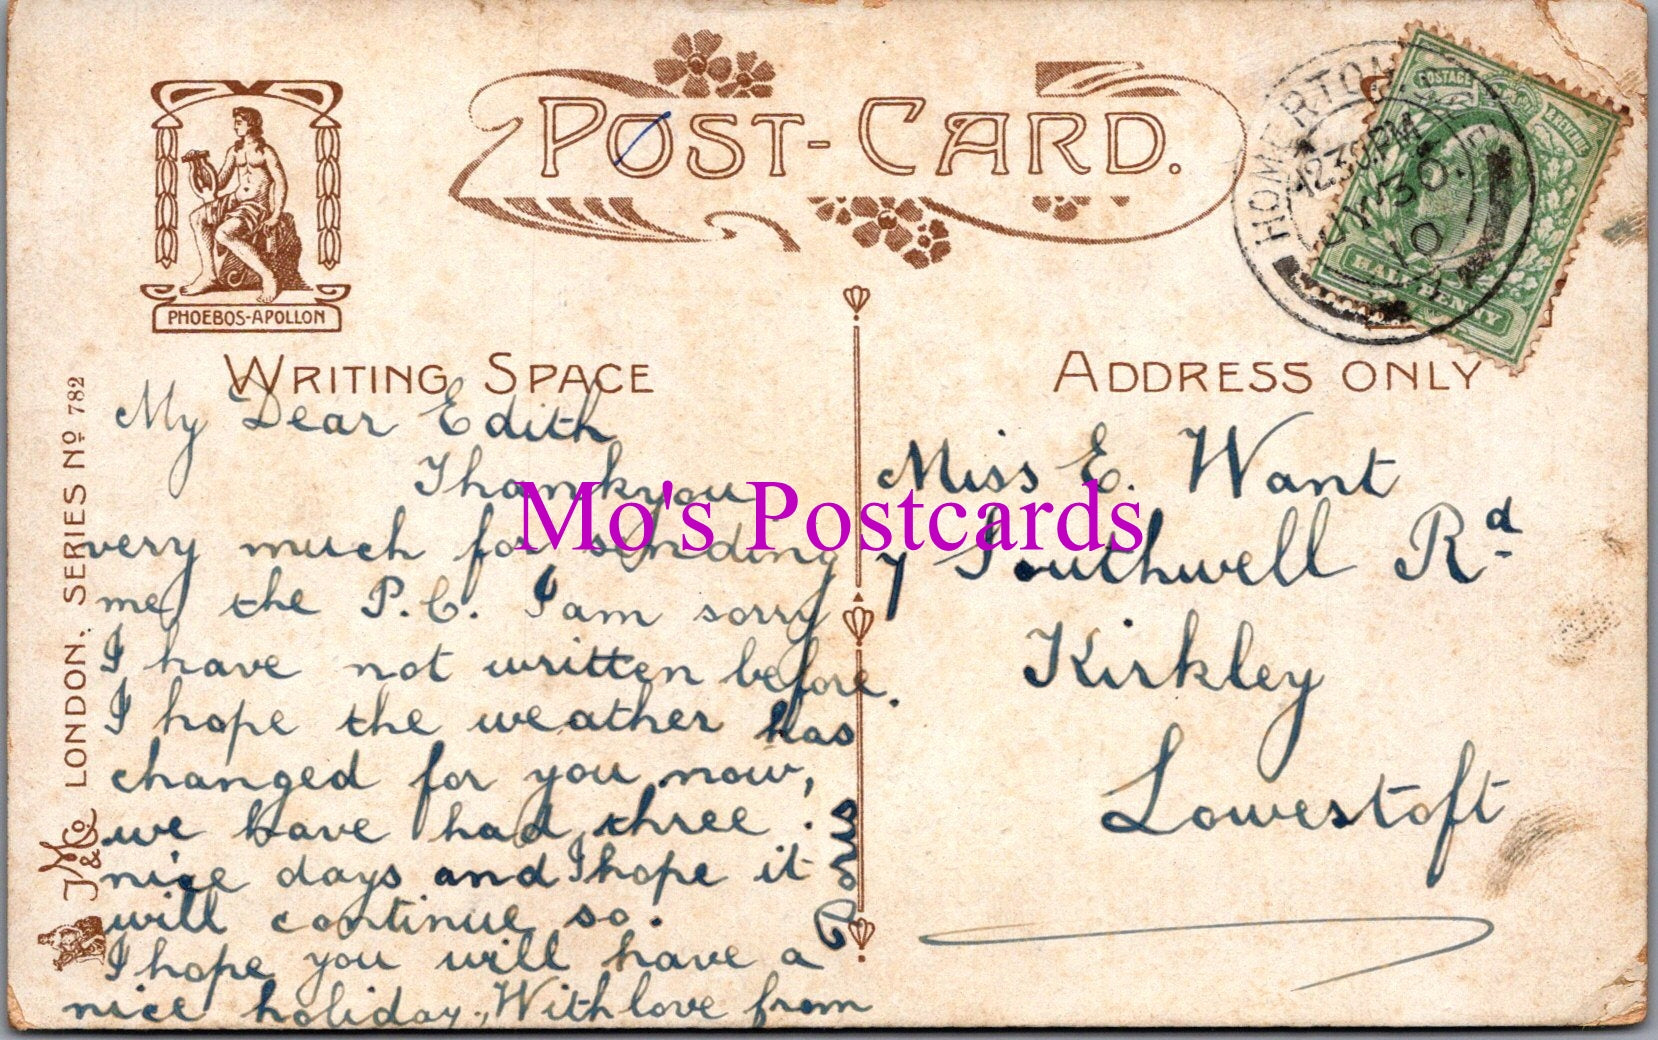 POST-CARD.
PHOEBOS-APOLLON
WRITING SPACE
ADDRESS ONLY
My Dear Edith
Thankyou
very much for sending
me the P.C. I am sorry
I have not written before.
I hope the weather has
changed for you now,
we have had three
nice days and I hope it
will continue so.
I hope you will have a
nice holiday, With love from
Miss E. Want
7 Southwell Rd
Kirkley
Lowestoft
HOMERTON
12.30PM
JY 30
10
POSTAGE & REVENUE
HALF PENNY
LONDON. SERIES No 782
Mo's Postcards